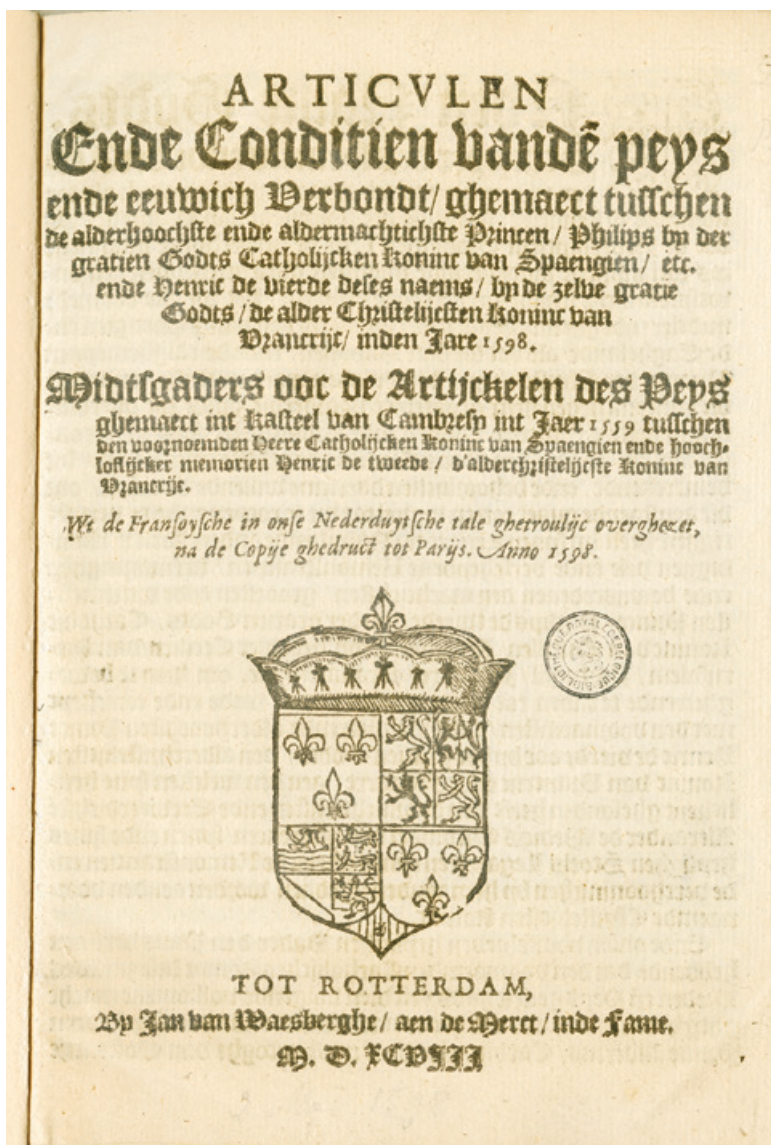 ARTICVLEN
Ende Conditien vandē peys
ende eeuwich Verbondt/ ghemaect tusschen
de alderhoochste ende aldermachtichste Princen/ Philips by der
gratien Godts Catholijcken Koninc van Spaengien/ etc.
ende Henric de vierde deses naems/ by de zelve gratie
Godts/ de alder Christelijcsten Koninc van
Vrancrijc/ inden Jare 1598.
Midtsgaders ooc de Artijckelen des Peys
ghemaect int Kasteel van Cambresy int Jaer 1559 tusschen
den voornoemden Heere Catholijcken Koninc van Spaengien ende hooch-
loflijcker memorien Henric de tweede/ d'alderchristelijcste Koninc van
Vrancrijc.
Wt de Fransoysche in onse Nederduytsche tale ghetroulijc overghezet,
na de Copije ghedruct tot Parijs. Anno 1598.
TOT ROTTERDAM,
By Jan van Waesberghe/ aen de Merct/ inde Fame.
M. D. XCVIII